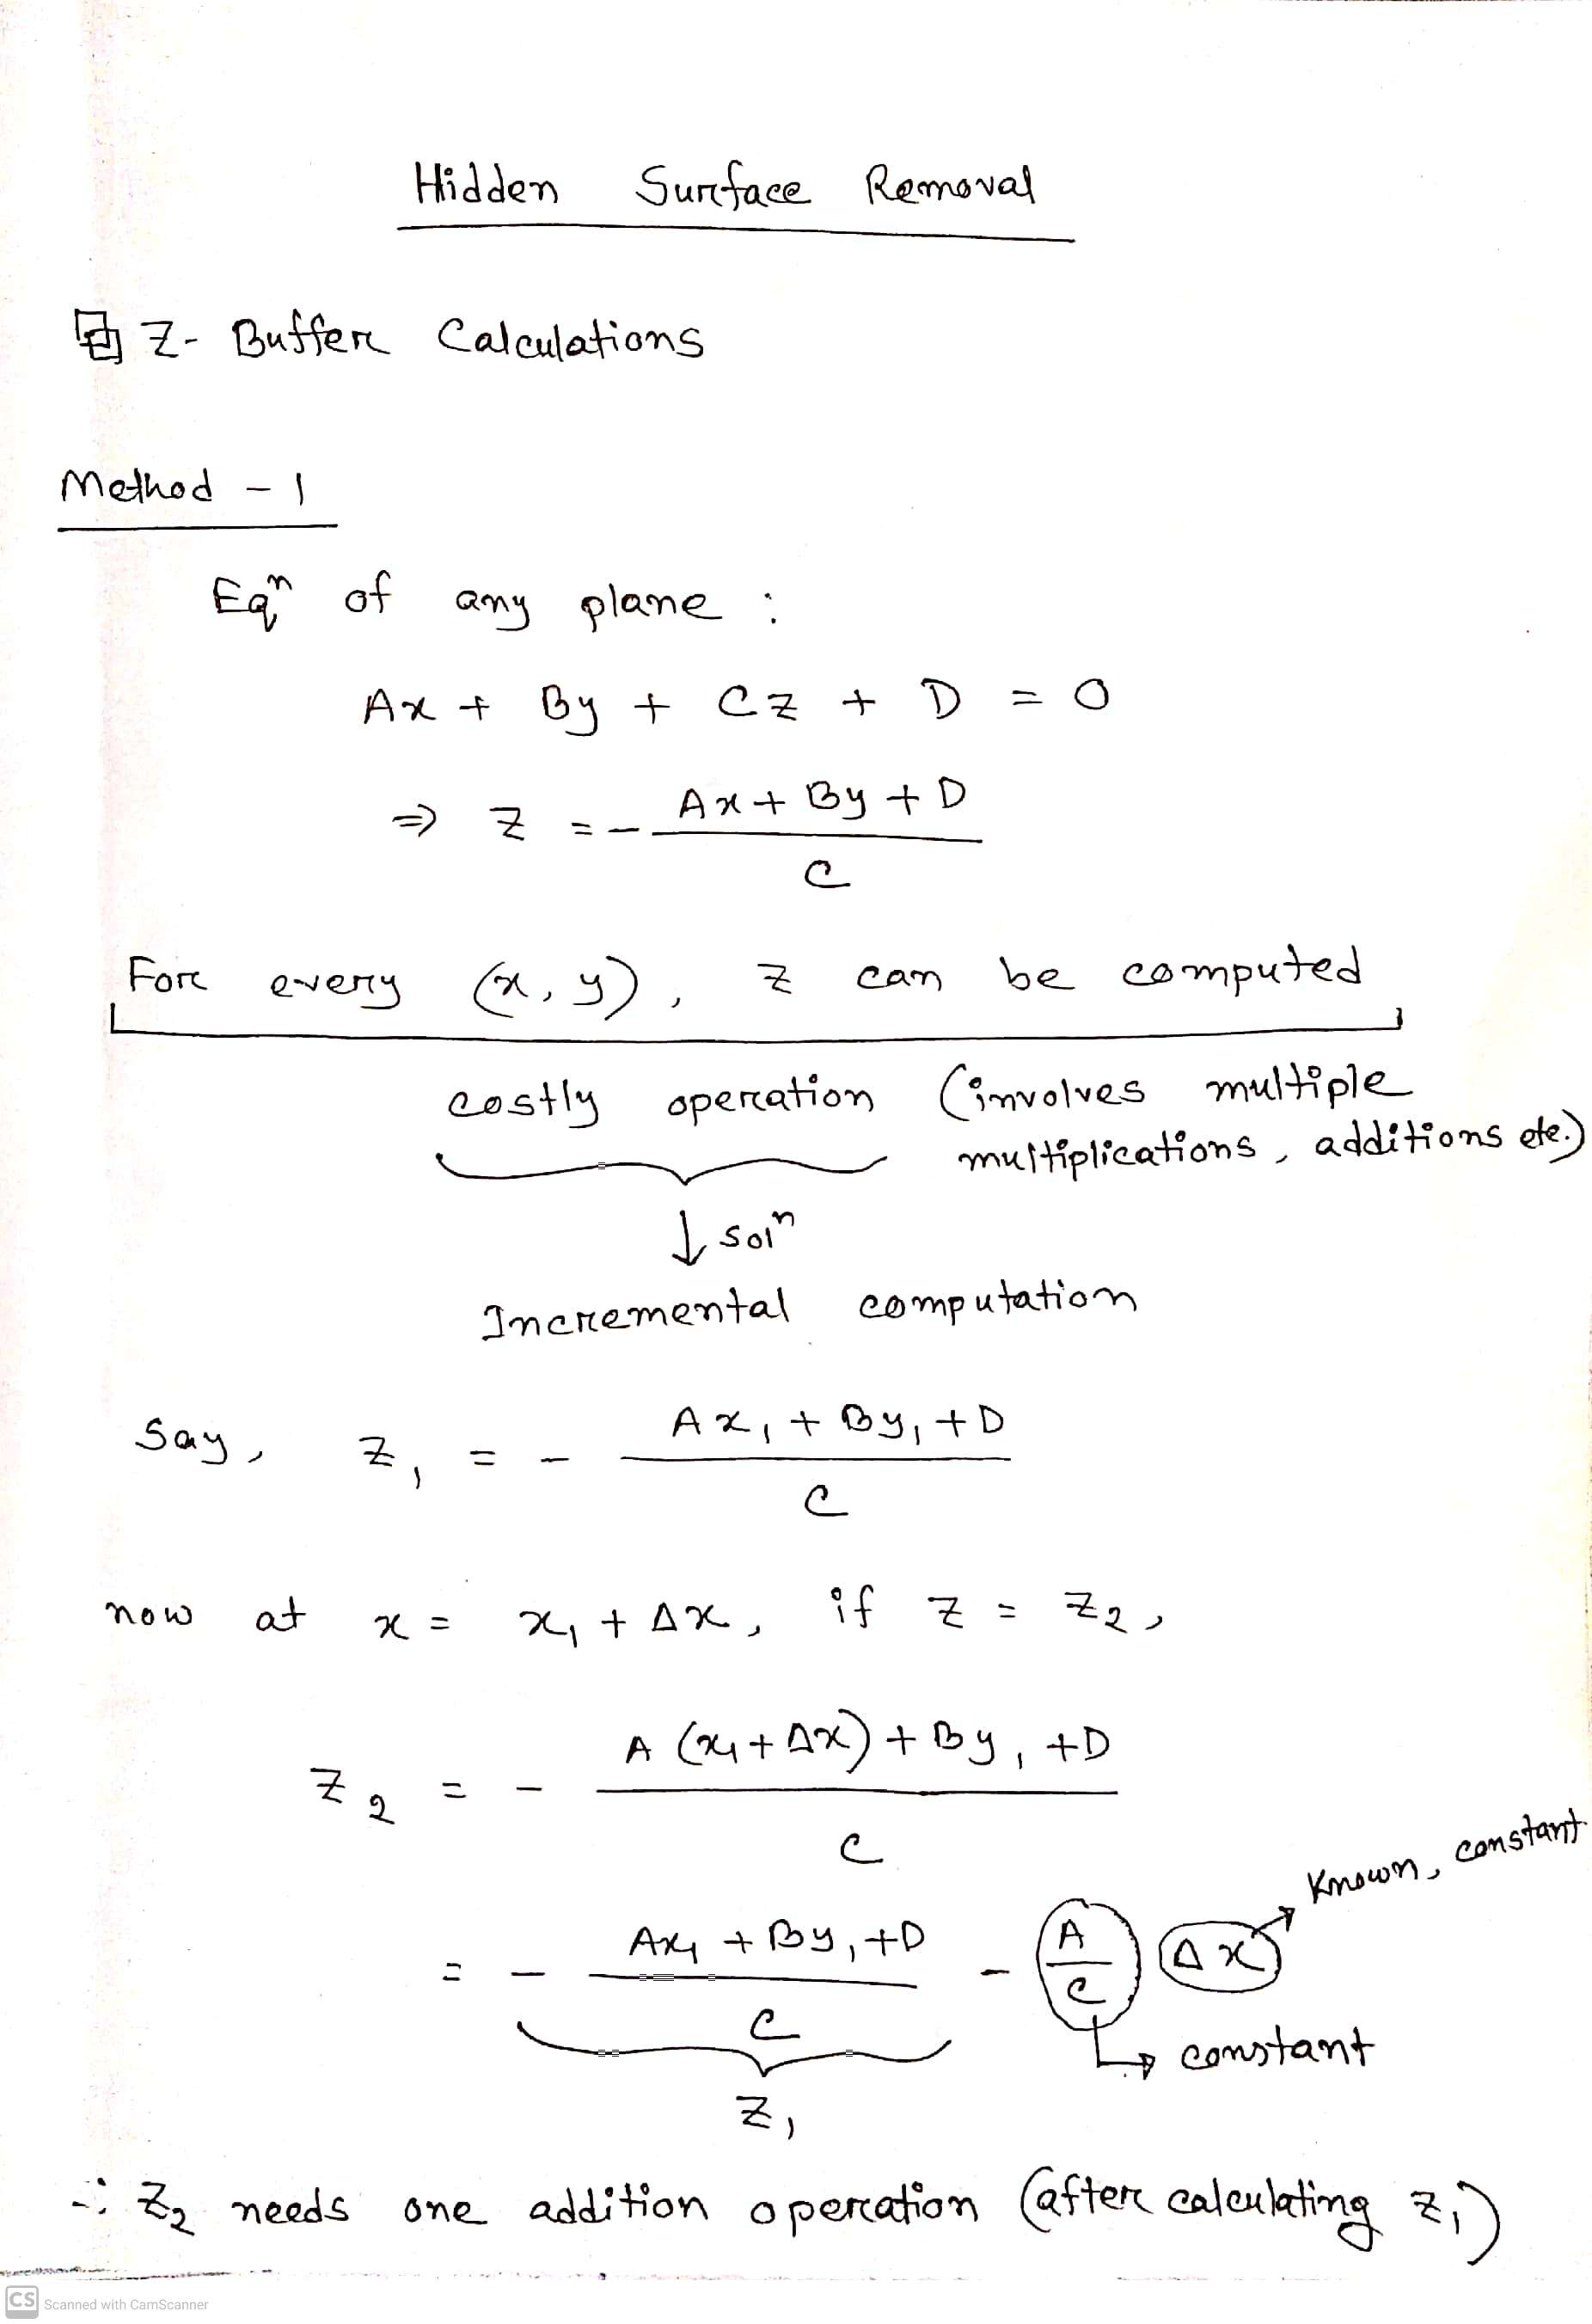 Hidden Surface Removal
Z-Buffer Calculations
Method - 1
Eqⁿ of any plane :
Ax + By + Cz + D = 0
⇒ z = - (Ax + By + D) / C
For every (x, y), z can be computed
costly operation (involves multiple
multiplications, additions etc.)
↓ solⁿ
Incremental computation
Say, z₁ = - (Ax₁ + By₁ + D) / C
now at x = x₁ + Δx, if z = z₂,
z₂ = - (A (x₁ + Δx) + By₁ + D) / C
Known, constant
= - (Ax₁ + By₁ + D) / C - (A / C) Δx
constant
z₁
∴ z₂ needs one addition operation (after calculating z₁)
CS Scanned with CamScanner